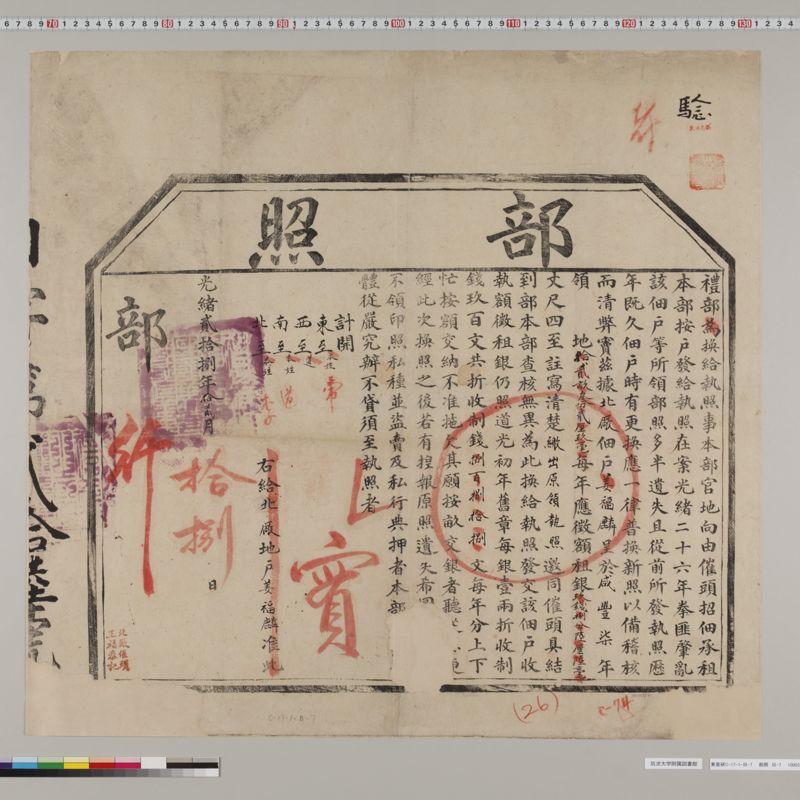 驗
部照
禮部為換給執照事本部官地向由催頭招佃承租
本部按戶發給執照在案光緒二十六年拳匪肇亂
該佃戶等所領部照多半遺失且從前所發執照歷
年既久佃戶時有更換應一律普換新照以備稽核
而清弊竇茲據北厰佃戶姜福麟呈於咸豐柒年
領 地拾貳畝 每年應徵額租銀
丈尺四至註寫清楚繳出原領執照邀同催頭具結
到部本部查核無異為此換給執照發交該佃戶收
執額徵租銀仍照道光初年舊章每銀壹兩折收制
錢玖百文共折收制錢 百捌拾捌文每年分上下
忙按額交納不准拖欠其願按畝交銀者聽
經此次換照之後若有捏報原照遺失希
不領印照私種並盜賣及私行典押者本部
體從嚴究辦不貸須至執照者
計開
東至
西至
南至
北至
右給北厰地戶姜福麟准此
光緒貳拾捌年拾貳月 拾捌 日
部
實
(26)
C-17-1-B-7
筑波大学附属図書館